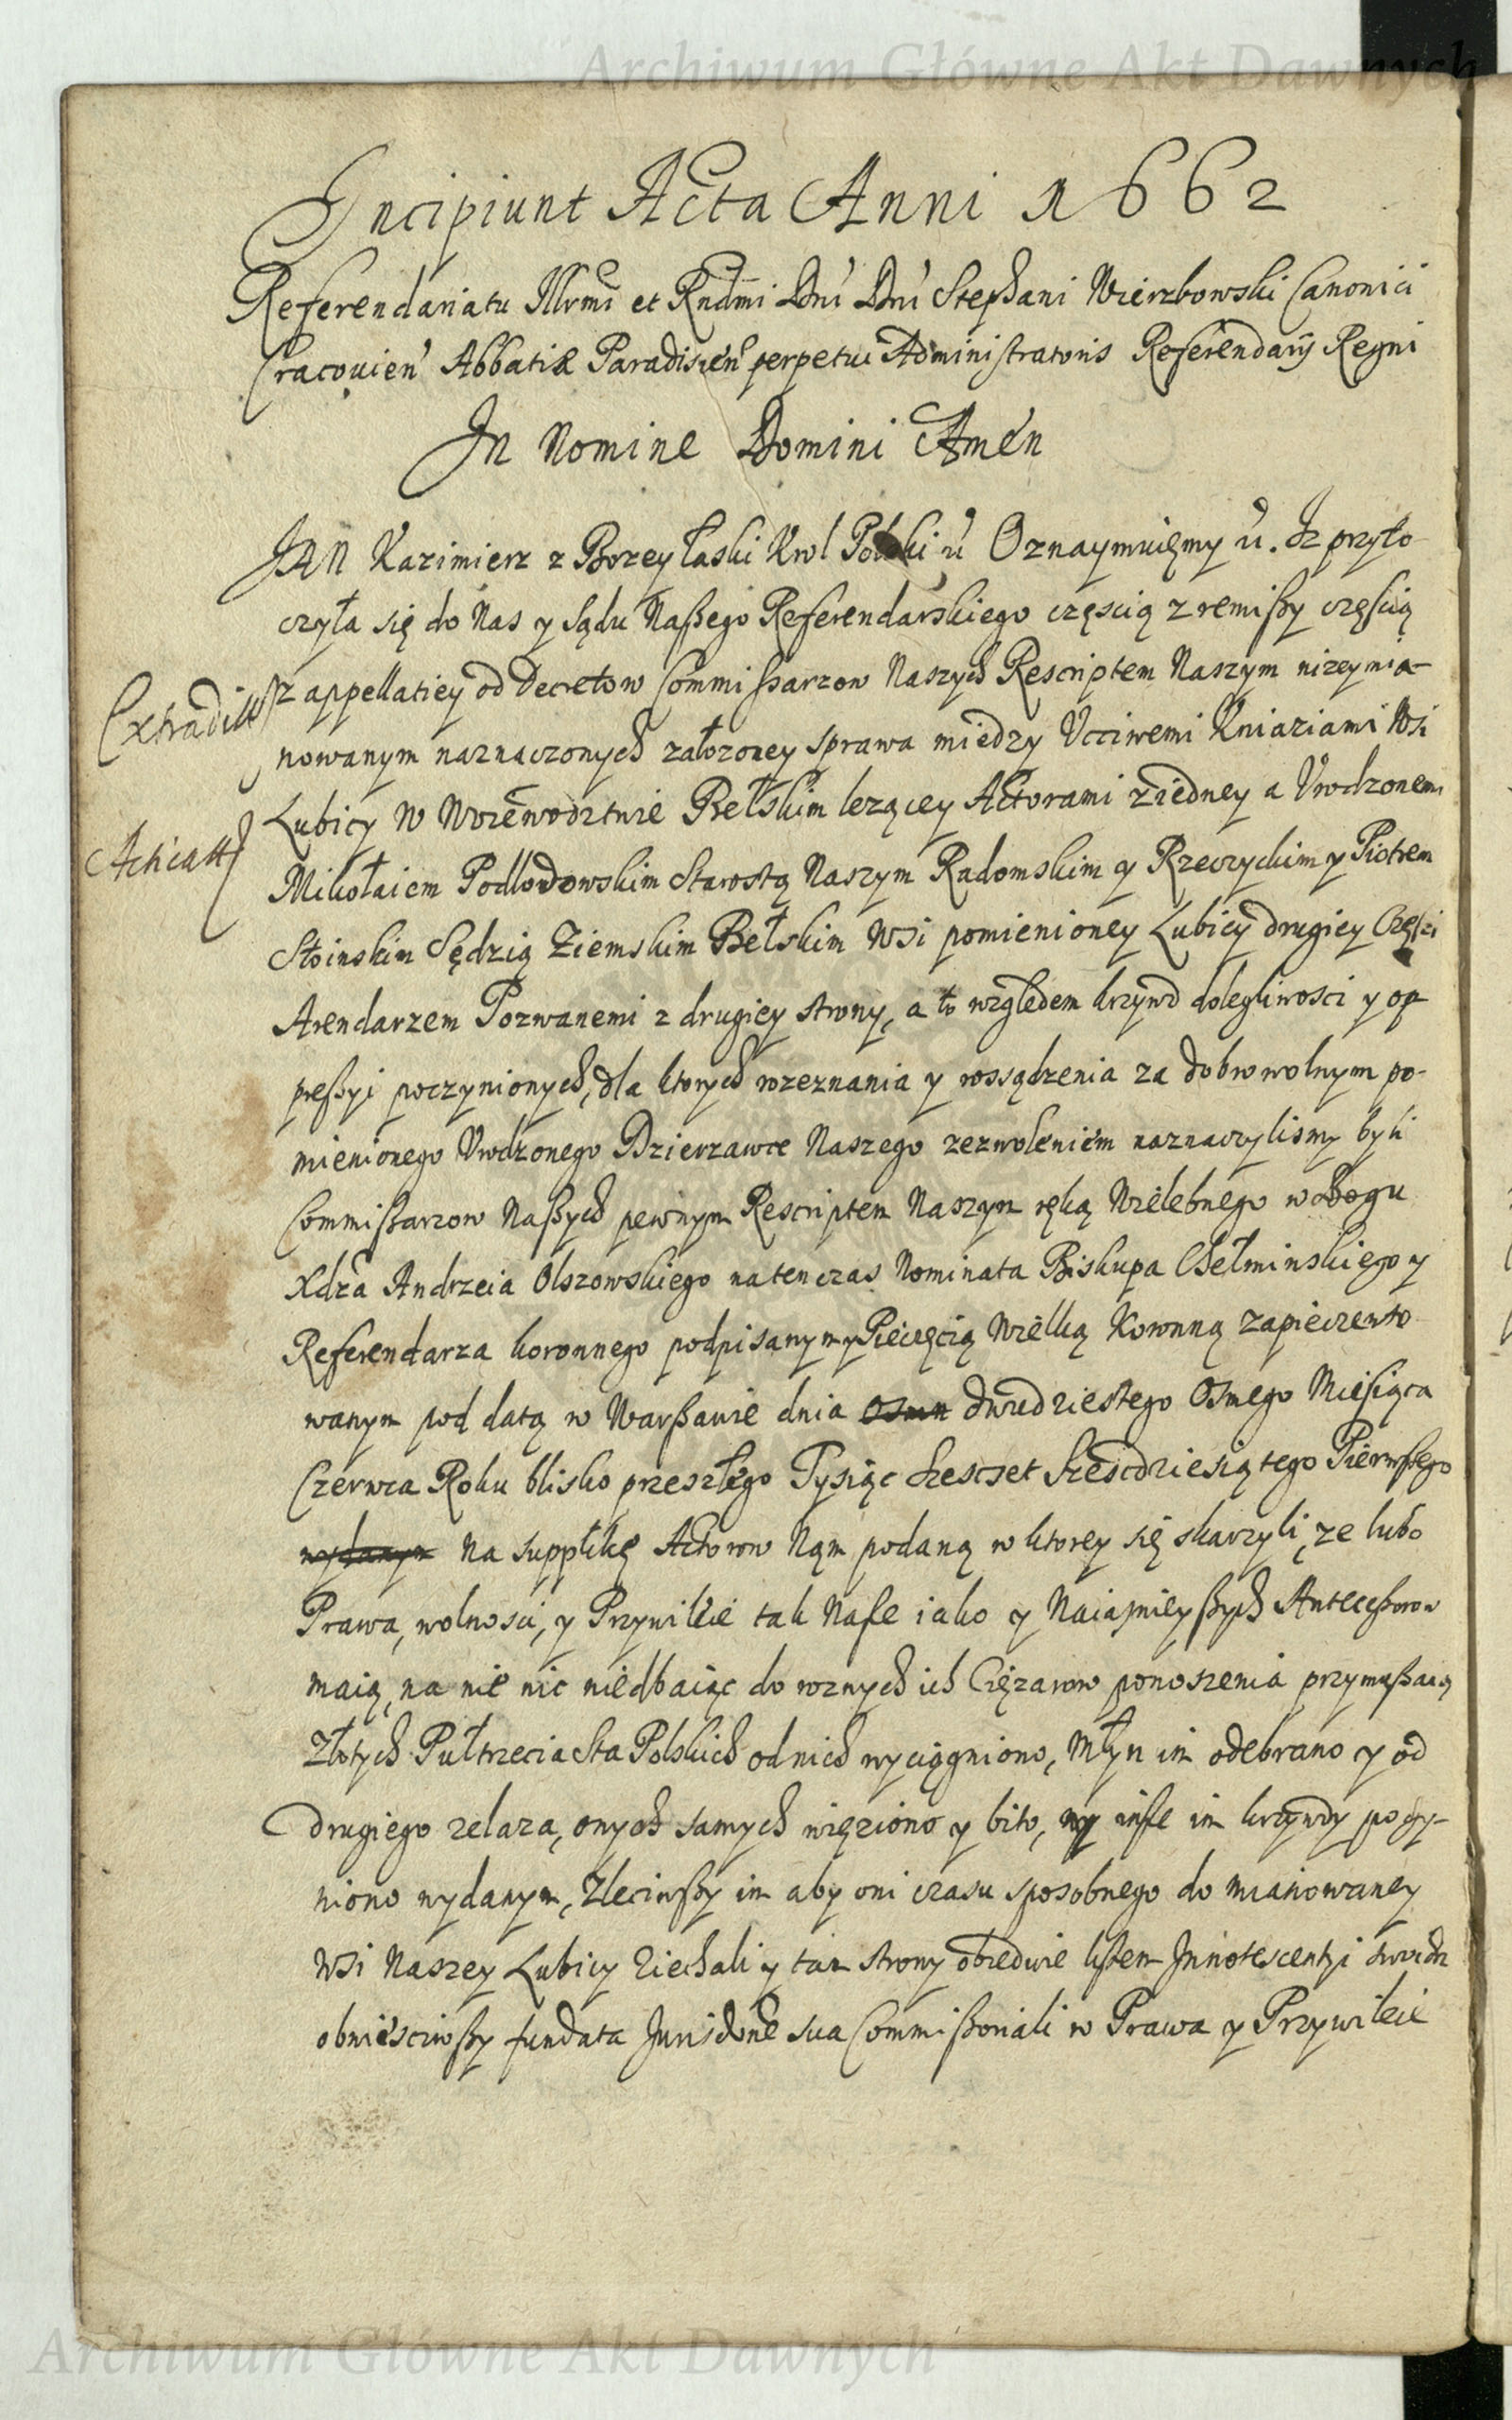 Archiwum Główne Akt Dawnych
Incipiunt Acta Anni 1662
Referendariatu Illrmi et Rndmi Dni Dni Stephani Wierzbowski Canonici
Cracouien Abbatiæ Paradisien perpetui Administratoris Referendarij Regni
In Nomine Domini Amen
JAN Kazimierz z Bozey łaski Krol Polski Oznaymuięmy. Iz przyto-
czyła się do Nas y sądu Naßego Referendarskiego częscią z remißy częscią
z appellatiey od Decretow Commißarzow Naszych Rescriptem Naszym nizey mia-
Extraditt
nowanym naznaczonych załozoney sprawa miedzy Vcciwemi Kniaziami Wsi
Lubicy w Woiewodztwie Bełskim lezącey Actorami z iedney a Vrodzonemi
Acticatt
Mikołaiem Podlodowskim Starostą Naszym Radomskim y Rzeczyckim y Piotrem
Stoinskim Sędzią Ziemskim Bełskim Wsi pomienioney Lubicy drugiey Częsci
Arendarzem Pozwanemi z drugiey strony, a to względem krzywd dolegliwosci y op-
preßyi poczynionych, dla ktorych rozeznania y rossądzenia za dobrowolnym po-
mienionego Vrodzonego Dzierzawce Naszego zezwoleniem naznaczylismy byli
Commißarzow Naßych pewnym Rescriptem Naszym ręką Wielebnego w Bogu
Xdza Andrzeia Olszowskiego natenczas Nominata Biskupa Chełminskiego y
Referendarza koronnego podpisanym y Pieczęcią Wielką Koronną zapieczęto-
wanym pod datą w Warßawie dnia osmn dwudziestego Osmego Miesiąca
Czerwca Roku blisko przeszłego Tysiąc Szescset Szescdziesiątego Pierwßego
wydanym na supplikę Actorow Nąm podaną w ktorey się skarzyli, ze lubo
Prawa, wolnosci, y Przywileie tak Naße iako y Naiasnieyßych Antecessorow
maią, na nie nic niedbaiąc do roznych ich Cięzarow ponoszenia przymußaią
Złotych Pułtrzecia Sta Polskich od nich wyciągniono, Młyn im odebrano y od
drugiego zelaza, onych samych więziono y bito, y inße im krzywdy poczy-
niono wydanym, Zleciwßy im aby oni czasu sposobnego do mianowaney
Wsi Naszey Lubicy ziechali y tam strony obiedwie listem Innotescentyi
obwiesciwßy fundata Jurisdone sua Commißoriali w Prawa y Przywileie
Archiwum Główne Akt Dawnych